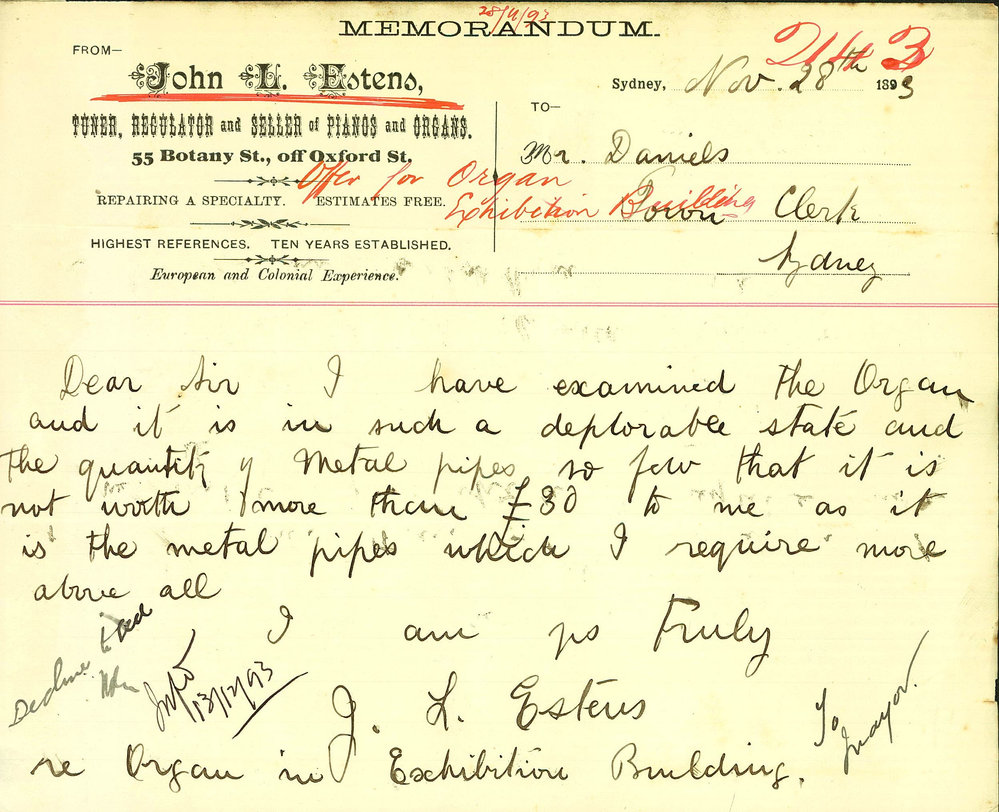 28/11/93
MEMORANDUM.
2143
FROM—
John L. Estens,
TUNER, REGULATOR and SELLER of PIANOS and ORGANS.
55 Botany St., off Oxford St.
REPAIRING A SPECIALTY. ESTIMATES FREE.
HIGHEST REFERENCES. TEN YEARS ESTABLISHED.
European and Colonial Experience.
Offer for Organ
Exhibition Building
Sydney, Nov. 28th 1893
TO—
Mr. Daniels
Town Clerk
Sydney
Dear Sir I have examined the Organ
and it is in such a deplorable state and
the quantity of Metal pipes so few that it is
not worth more than £30 to me as it
is the metal pipes which I require more
above all
I am yrs Truly
J. L. Estens
re Organ in Exhibition Building.
Decline
13/12/93
To Mayor.